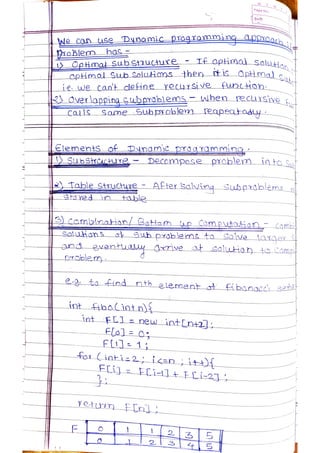 We can use Dynamic programming approach
problem has -
1) Optimal substructure - If optimal solution
optimal sub solutions then it is optimal sub
i.e. we can't define recursive function.
2) Overlapping subproblems - When recursive
calls same subproblem repeatedly.
Elements of Dynamic programming.
1) Substructure - Decompose problem into
2) Table structure - After solving subproblems
stored in table
3) combination / Bottom up computation - comb
solutions of subproblems to solve larger
and eventually arrive at solution to
problem.
e.g. to find nth element of fibonacci
int fibo(int n){
int F[] = new int[n+2];
F[0] = 0;
F[1] = 1;
for (int i=2; i<=n; i++){
F[i] = F[i-1] + F[i-2];
};
return F[n];
F 0 1 1 2 3 5
0 1 2 3 4 5